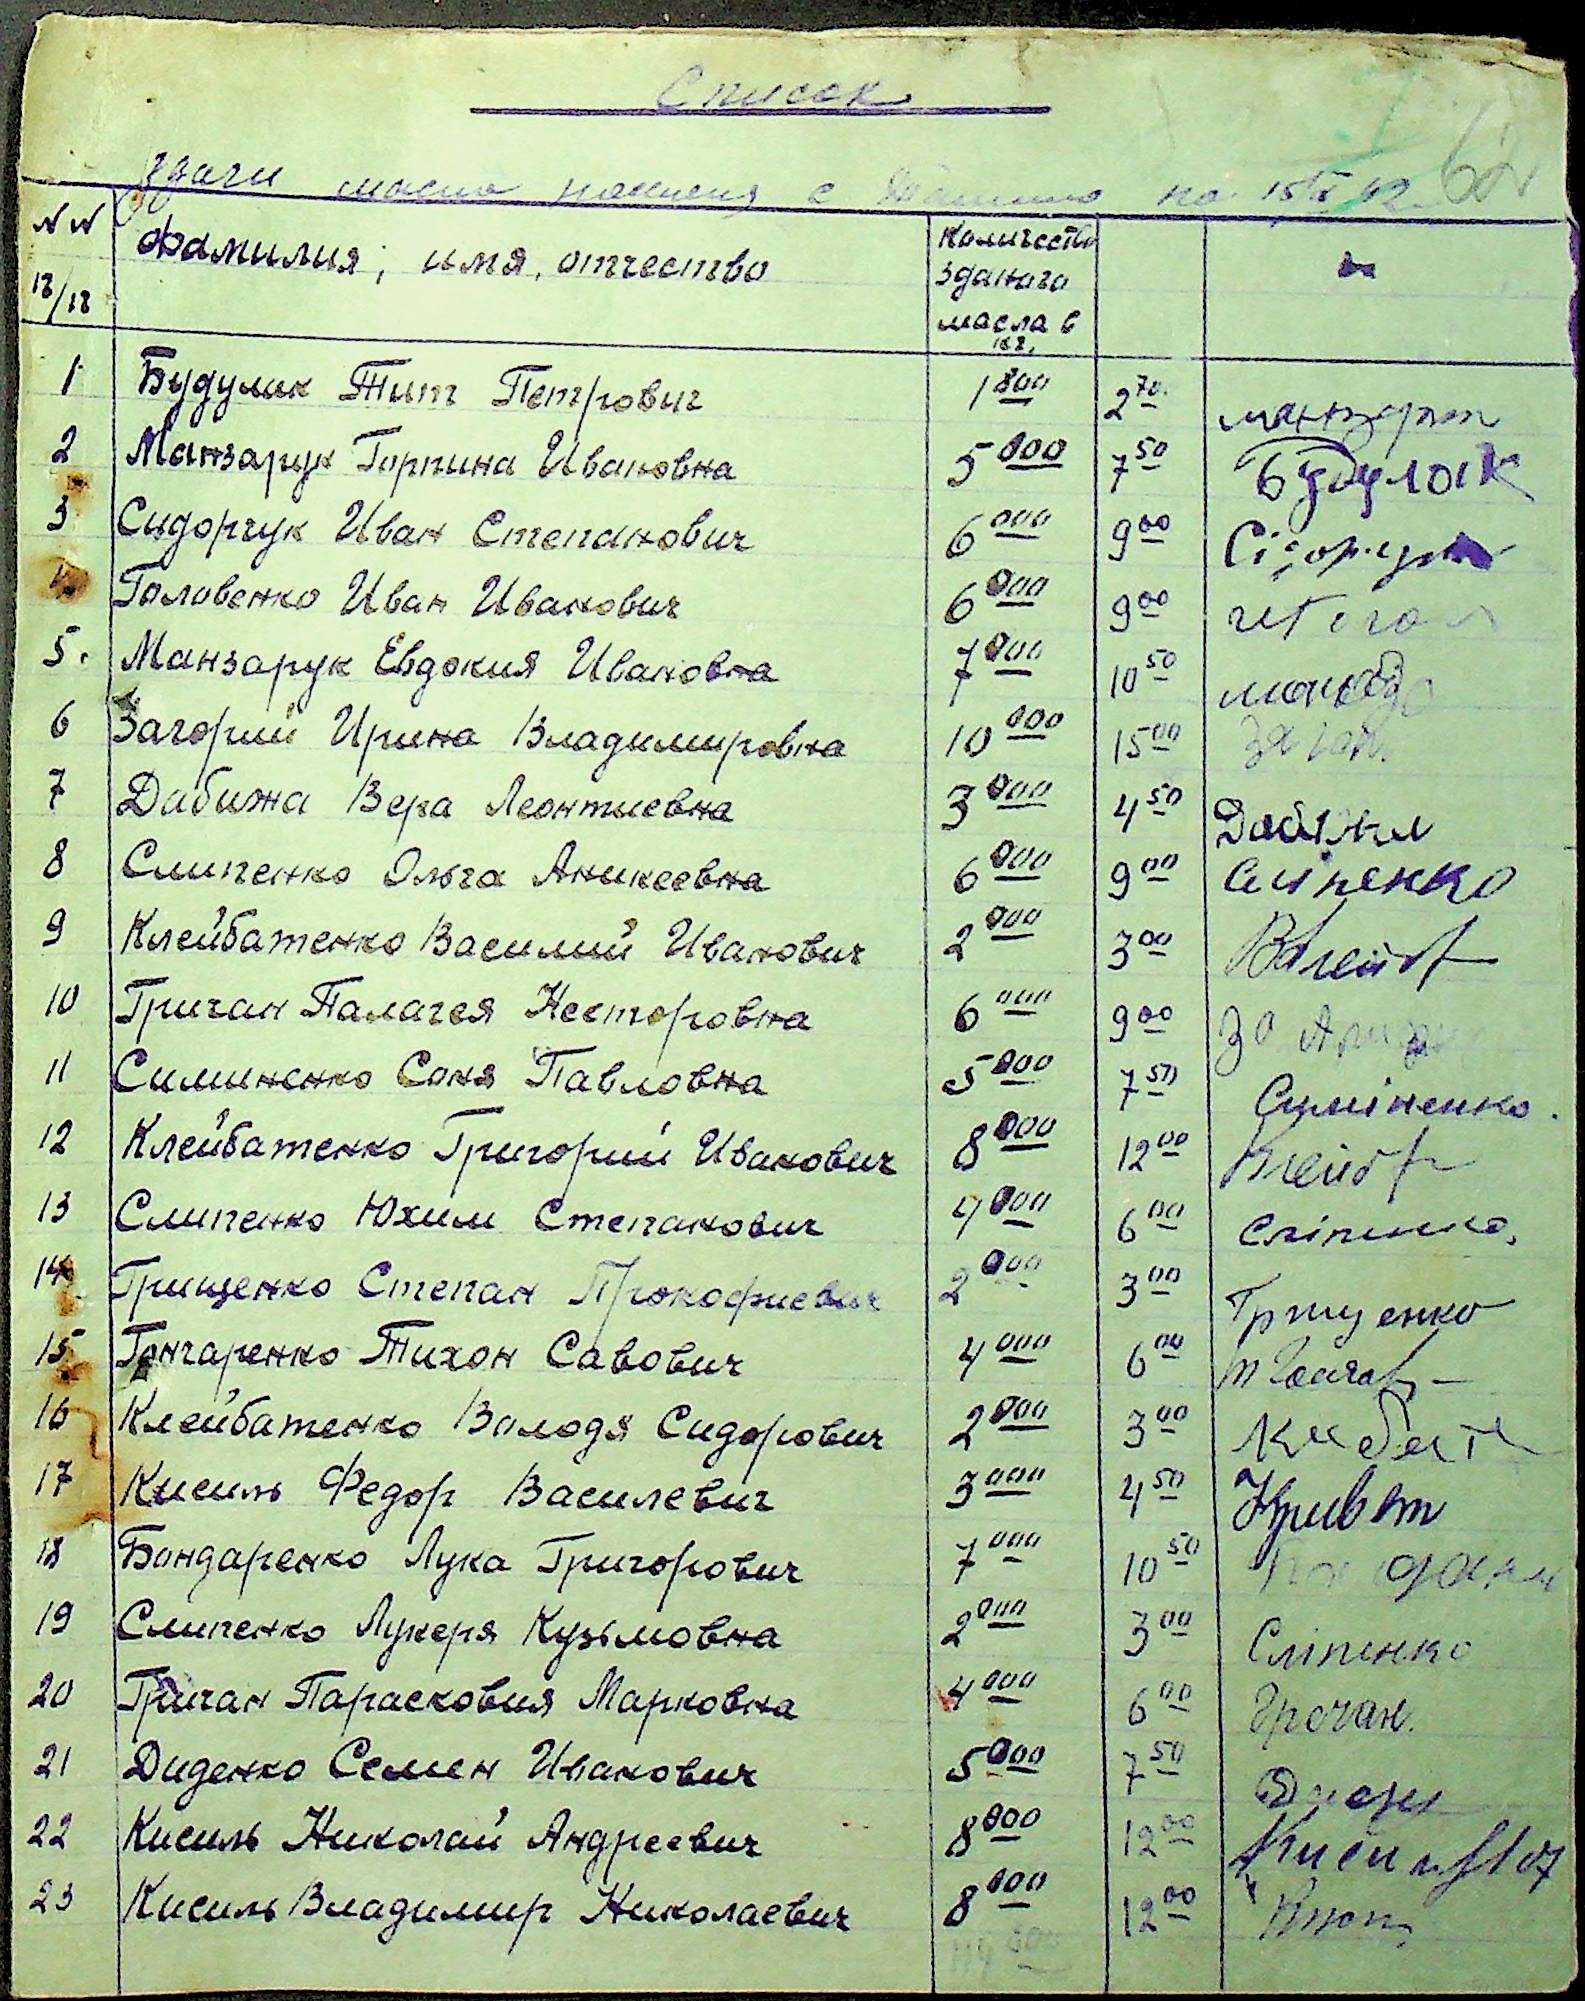 Список
здачи масла
№№ п/п Фамилия, имя, отчество Количество зданого масла в кг.
1 Будулак Тит Петрович 1 800 2 70 манзарт
2 Манзарук Горпина Ивановна 5 000 7 50 Будулак
3 Сидорчук Иван Степанович 6 000 9 00
4 Головенко Иван Иванович 6 000 9 00
5. Манзарук Евдокия Ивановна 7 000 10 50
6 Загорий Ирина Владимировна 10 000 15 00
7 Дабижа Вера Леонтиевна 3 000 4 50
8 Слипенко Ольга Аникеевна 6 000 9 00 Сліпенко
9 Клейбатенко Василий Иванович 2 000 3 00
10 Гричан Палагея Несторовна 6 000 9 00
11 Симиненко Соня Павловна 5 000 7 50 Симіненко.
12 Клейбатенко Григорий Иванович 8 000 12 00
13 Слипенко Юхим Степанович 4 000 6 00 Сліпенко.
14 Грищенко Степан Прокофиевич 2 000 3 00 Грищенко
15 Гончаренко Тихон Савович 4 000 6 00
16 Клейбатенко Володя Сидорович 2 000 3 00
17 Кисиль Федор Василевич 3 000 4 50
18 Бондаренко Лука Григорович 7 000 10 50
19 Слипенко Лукеря Кузьмовна 2 000 3 00 Сліпенко
20 Гричан Парасковия Марковна 4 000 6 00 Грочан.
21 Диденко Семен Иванович 5 000 7 50
22 Кисиль Николай Андреевич 8 000 12 00
23 Кисиль Владимир Николаевич 8 000 12 00